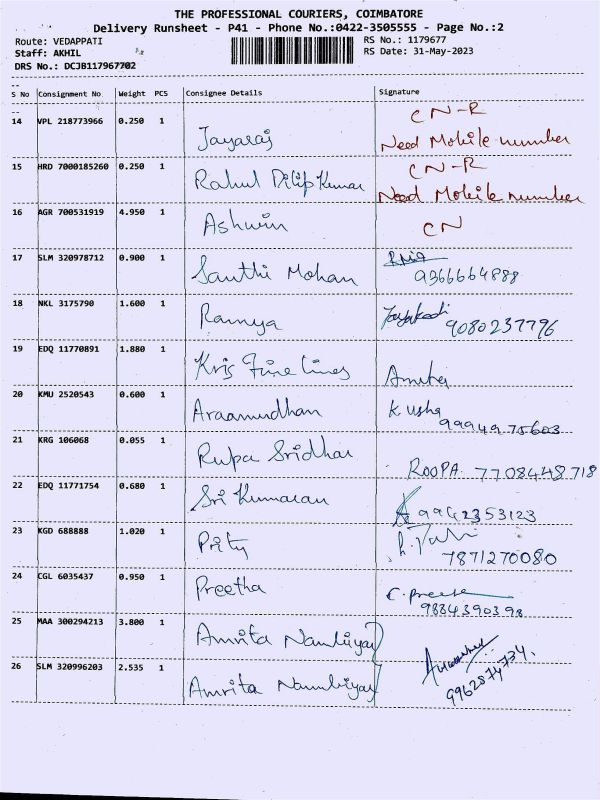 THE PROFESSIONAL COURIERS, COIMBATORE
Delivery Runsheet - P41 - Phone No.:0422-3505555 - Page No.:2
Route: VEDAPPATI RS No.: 1179677
Staff: AKHIL RS Date: 31-May-2023
DRS No.: DCJB117967702
S No Consignment No Weight PCS Consignee Details Signature
CN-R
14 VPL 218773966 0.250 1 Jayaraj Need Mobile number
CN-R
15 HRD 7000185260 0.250 1 Rahul Dilip Kumar Need Mobile number
16 AGR 700531919 4.950 1 Ashwin CN
17 SLM 320978712 0.900 1 Santhi Mohan 9366664888
18 NKL 3175790 1.600 1 Ramya 9080237796
19 EDQ 11770891 1.880 1 Kris Fine lines
20 KMU 2520543 0.600 1 Araamudhan K. Usha
9994975603
21 KRG 106068 0.055 1 Rupa Sridhar ROOPA. 7708448718
22 EDQ 11771754 0.680 1 Sri Kumaran 9942353123
23 KGD 688888 1.020 1 Prity
7871270080
24 CGL 6035437 0.950 1 Preetha C. Preetha
9884390398
25 MAA 300294213 3.800 1 Amrita Nambiyar
26 SLM 320996203 2.535 1 Amrita Nambiyar 9962874734.